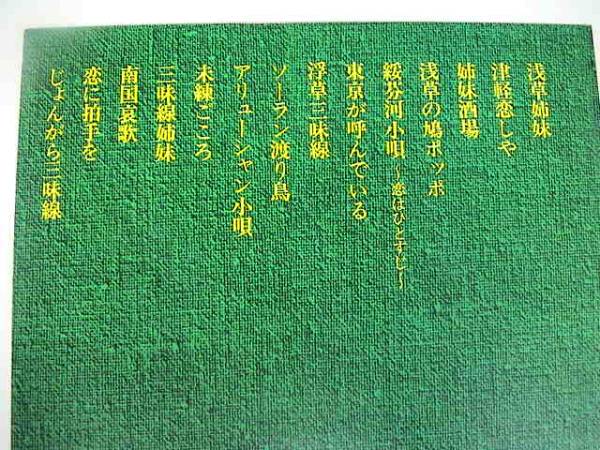 浅草姉妹
津軽恋しや
姉妹酒場
浅草の鳩ポッポ
綏芬河小唄 ~恋はひとすじ~
東京が呼んでいる
浮草三味線
ソーラン渡り鳥
アリューシャン小唄
未練ごころ
三味線姉妹
南国哀歌
恋に拍手を
じょんがら三味線